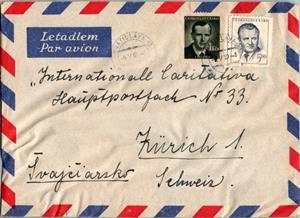 Letadlem
Par avion
ČESKOSLOVENSKO
ČESKOSLOVENSKO
BRATISLAVA
„Internationale Caritativa
Hauptpostfach Nr 33.
Zürich 1.
Švajčiarsko
Schweiz.